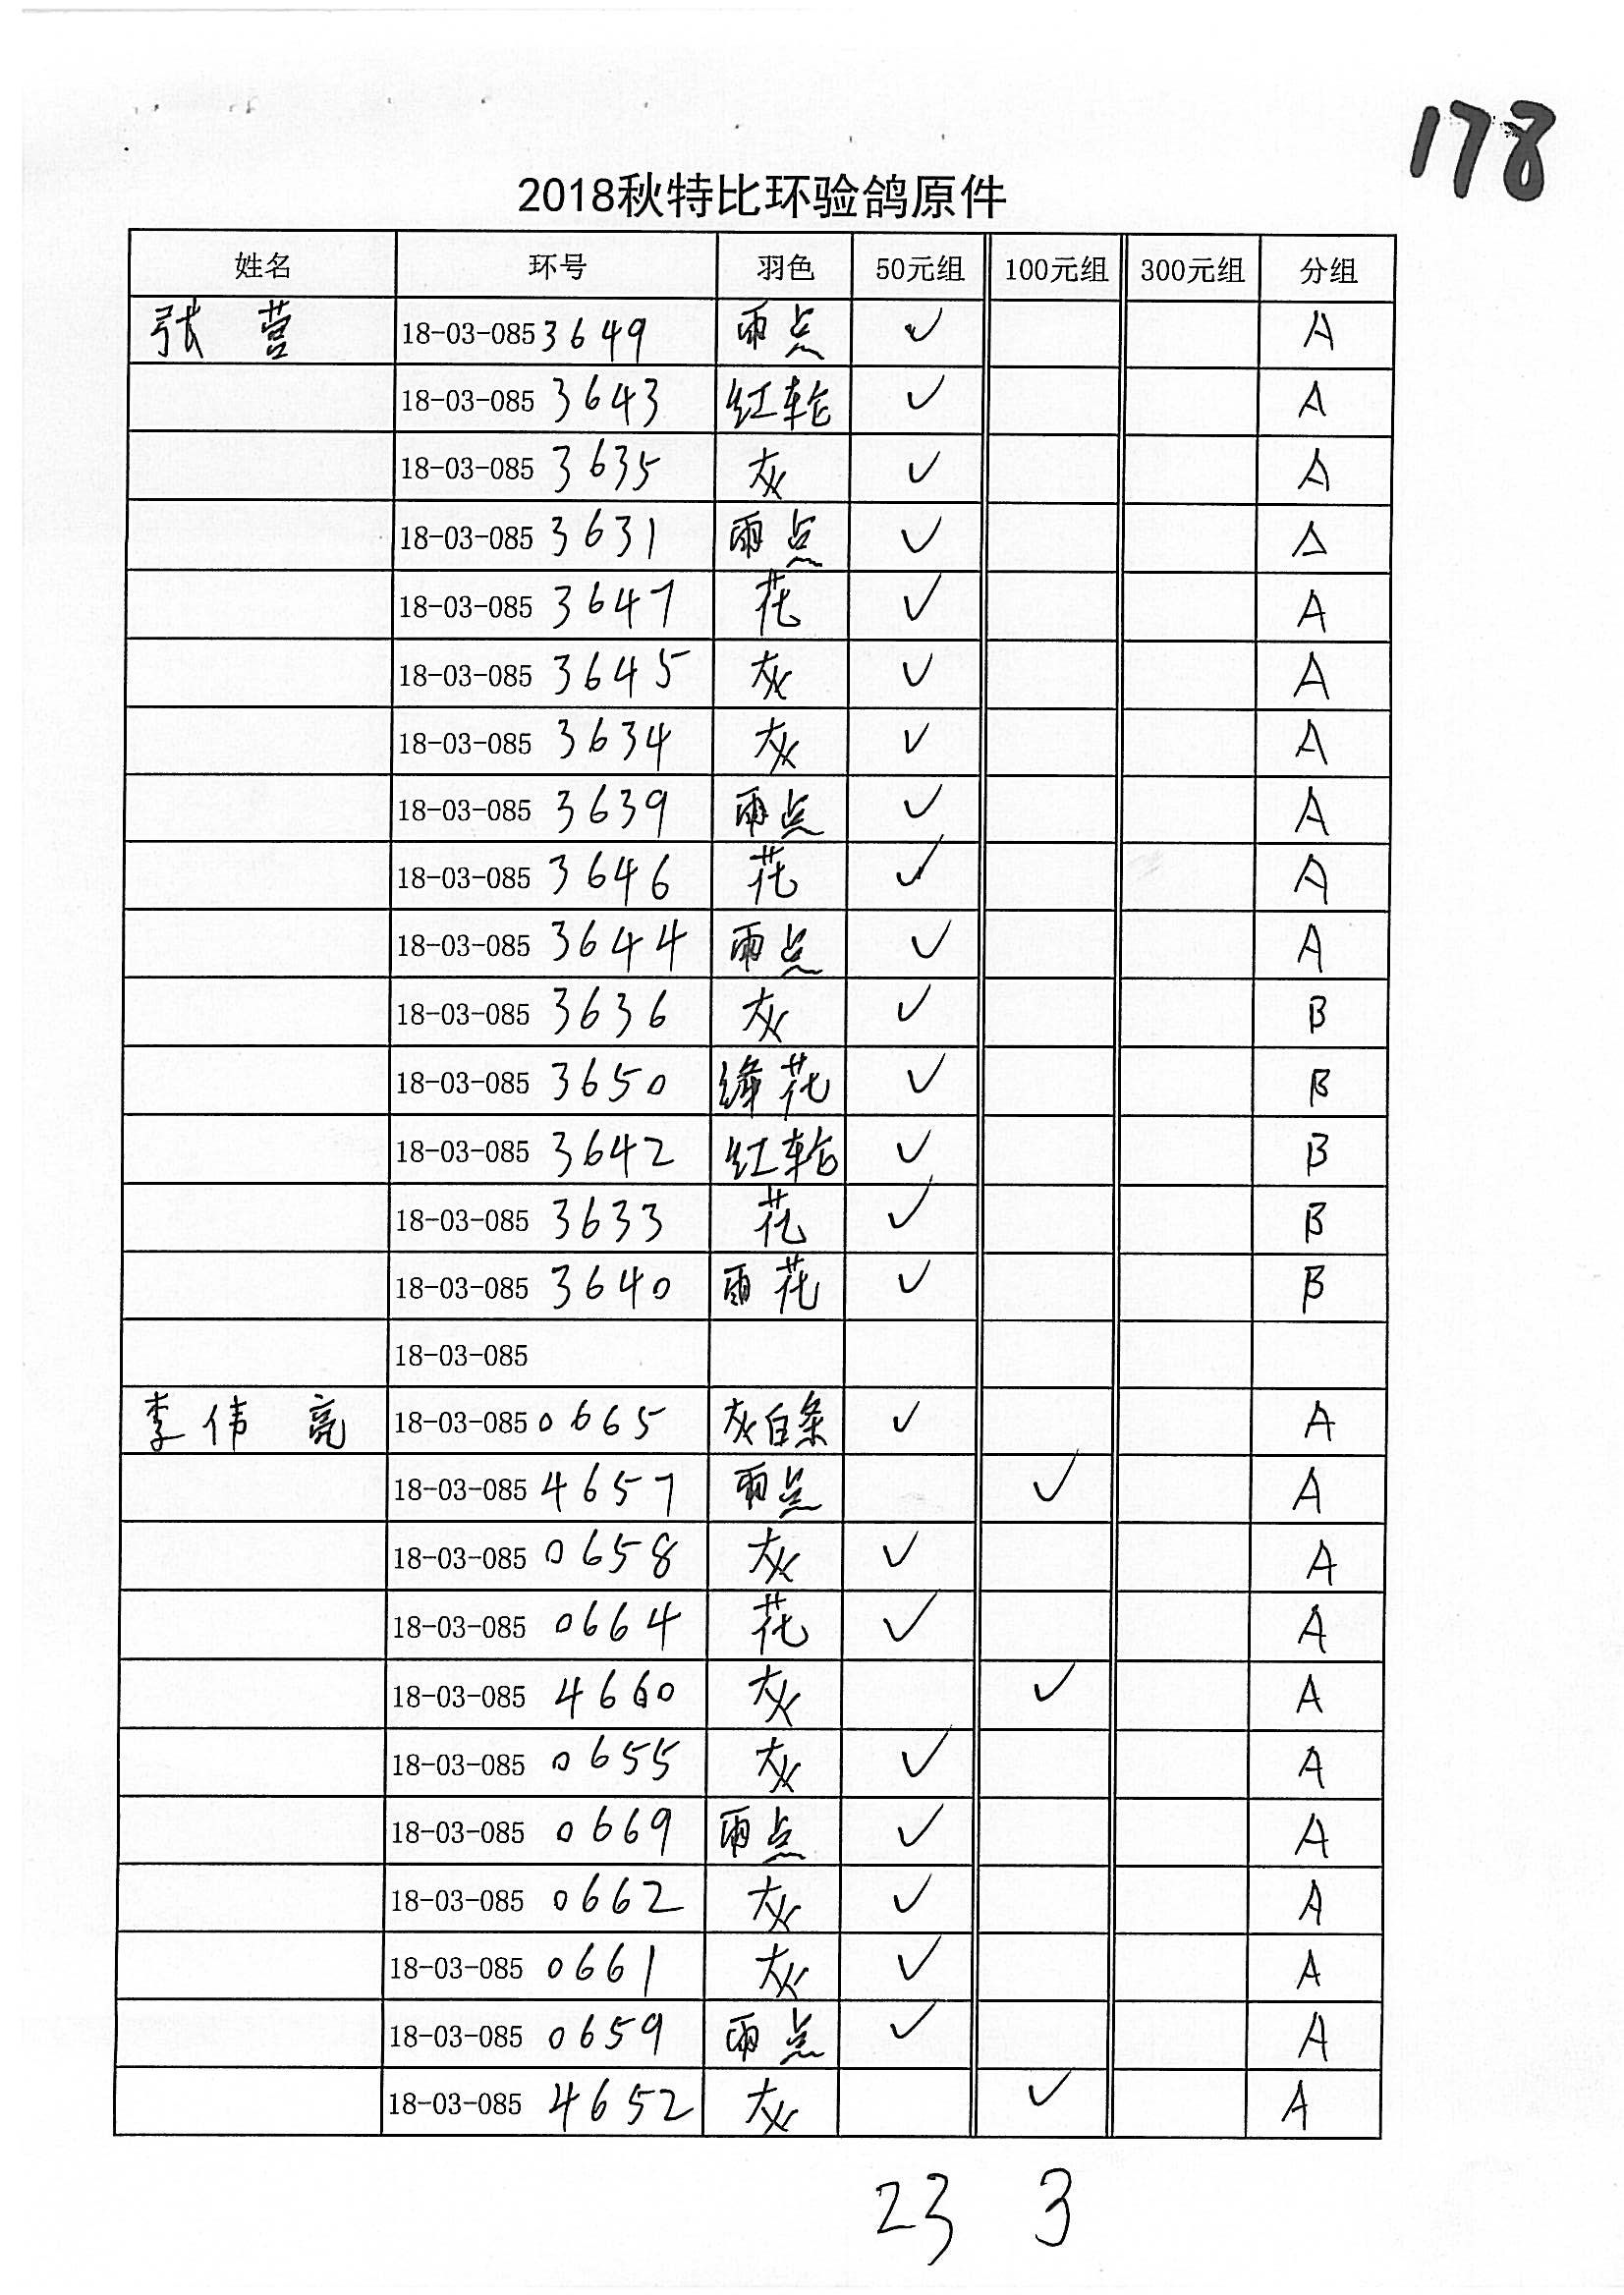 178
2018秋特比环验鸽原件
姓名 环号 羽色 50元组 100元组 300元组 分组
张营 18-03-085 3649 雨点 ✓ A
18-03-085 3643 红轮 ✓ A
18-03-085 3635 灰 ✓ A
18-03-085 3631 雨点 ✓ A
18-03-085 3647 花 ✓ A
18-03-085 3645 灰 ✓ A
18-03-085 3634 灰 ✓ A
18-03-085 3639 雨点 ✓ A
18-03-085 3646 花 ✓ A
18-03-085 3644 雨点 ✓ A
18-03-085 3636 灰 ✓ B
18-03-085 3650 绛花 ✓ B
18-03-085 3642 红轮 ✓ B
18-03-085 3633 花 ✓ B
18-03-085 3640 雨花 ✓ B
18-03-085
李伟亮 18-03-085 0665 灰白条 ✓ A
18-03-085 4657 雨点 ✓ A
18-03-085 0658 灰 ✓ A
18-03-085 0664 花 ✓ A
18-03-085 4660 灰 ✓ A
18-03-085 0655 灰 ✓ A
18-03-085 0669 雨点 ✓ A
18-03-085 0662 灰 ✓ A
18-03-085 0661 灰 ✓ A
18-03-085 0659 雨点 ✓ A
18-03-085 4652 灰 ✓ A
23 3